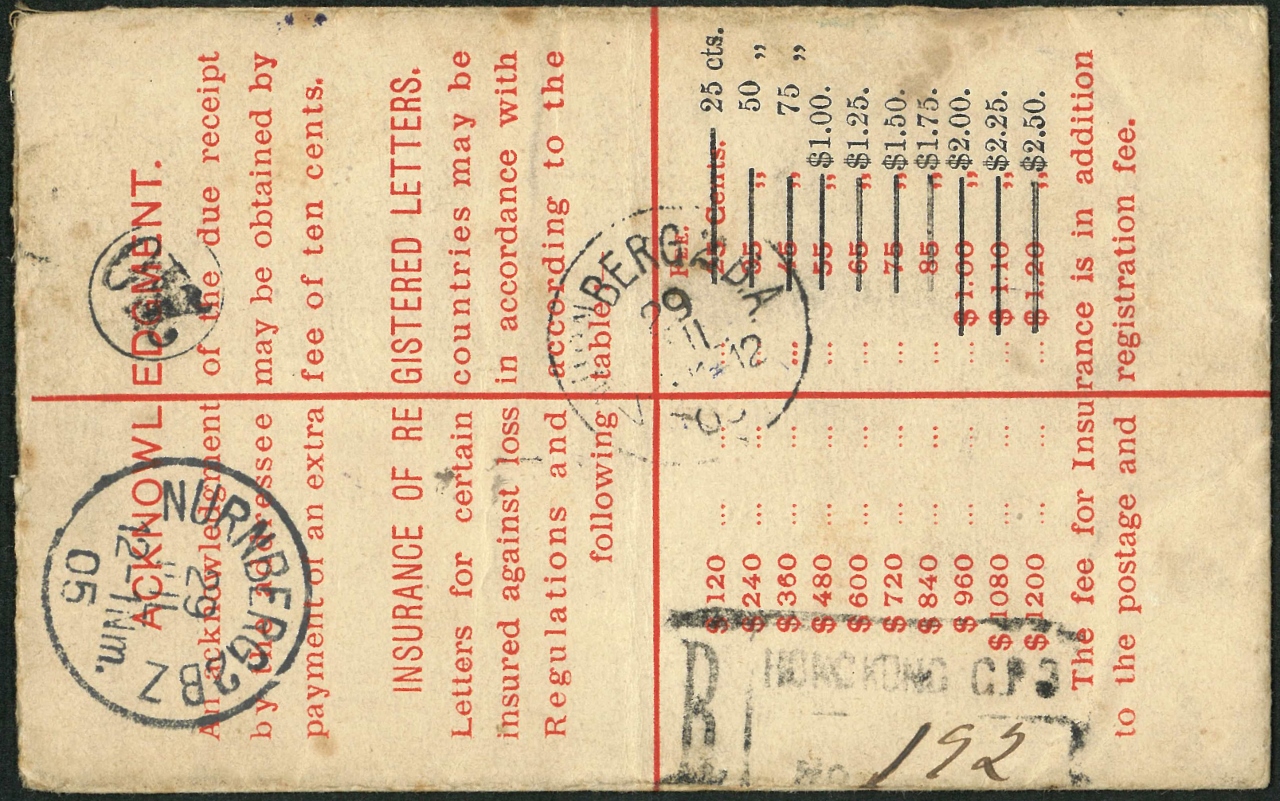 ACKNOWLEDGMENT.
An acknowledgment of the due receipt
by the addressee may be obtained by
payment of an extra fee of ten cents.
INSURANCE OF REGISTERED LETTERS.
Letters for certain countries may be
insured against loss in accordance with
Regulations and according to the
following table:
FEE.
$ 120 ... ... ... 25 Cents. 25 cts.
$ 240 ... ... ... 35 „ 50 „
$ 360 ... ... ... 45 „ 75 „
$ 480 ... ... ... 55 „ $1.00.
$ 600 ... ... ... 65 „ $1.25.
$ 720 ... ... ... 75 „ $1.50.
$ 840 ... ... ... 85 „ $1.75.
$ 960 ... ... ... $1.00 „ $2.00.
$1080 ... ... ... $1.10 „ $2.25.
$1200 ... ... ... $1.20 „ $2.50.
The fee for Insurance is in addition
to the postage and registration fee.
NURNBERG 2BZ
29
JUL
12-1Nm.
05
29
JUL
R
HONG KONG G.P.O
No 192